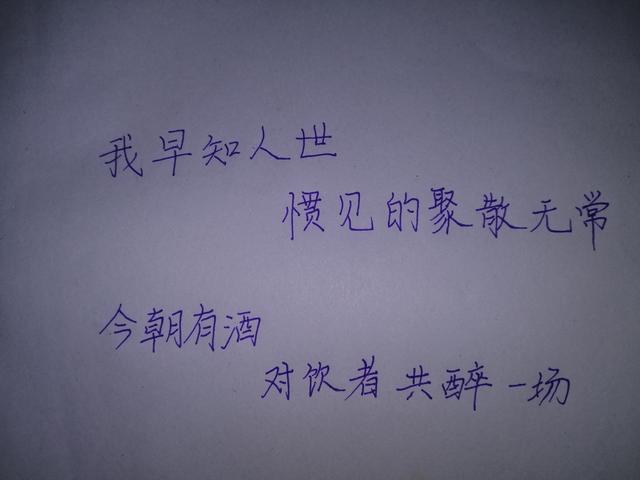 我早知人世
惯见的聚散无常
今朝有酒
对饮者共醉一场